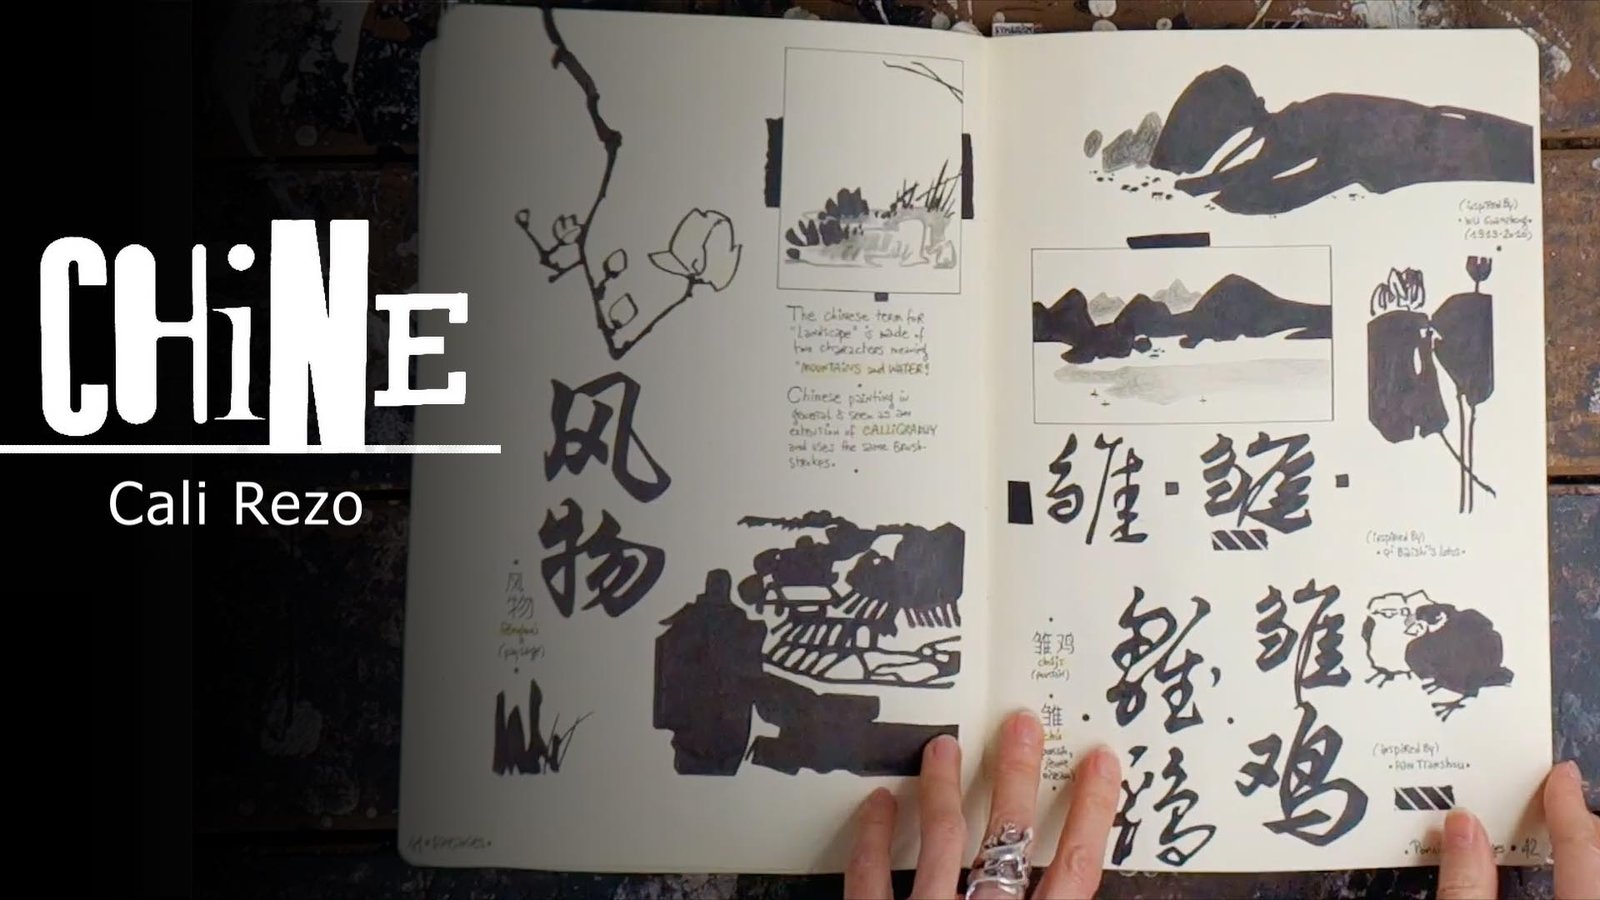 CHiNE
Cali Rezo
风
物
风
物
(paysage)
The chinese term for
"Landscape" is made of
two characters meaning
"MOUNTAINS and WATER"!
Chinese painting in
general is seen as an
extension of CALLIGRAPHY
and uses the same brush-
strokes.
(inspired By)
(1919-2010)
雏
雏
(inspired By)
• Qi Baishi's lotus •
雏鸡
(poussin)
雏
chú
雏
雏
鸡
(inspired By)
• PAN Tianshou •
• 42